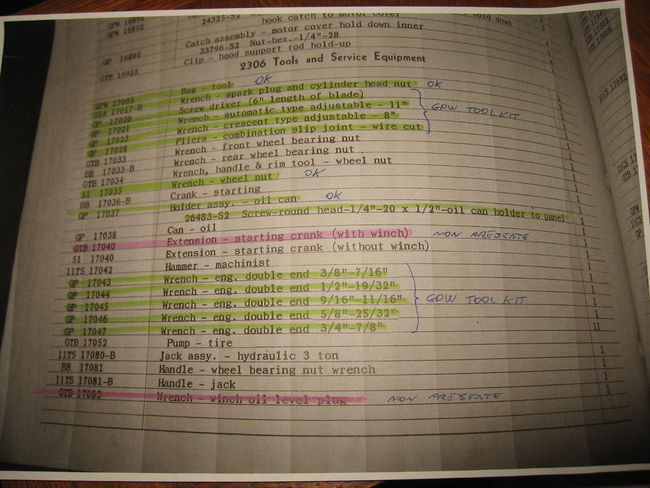 GPW 16892
24325-S2 hook catch to motor cover
hold down
Catch assembly - motor cover hold down inner
33796-S2 Nut-hex.-1/4"-28
GP 16892 Clip - hood support rod hold-up
GTB 16925
2306 Tools and Service Equipment
Bag - tool OK
GPW 17005 Wrench - spark plug and cylinder head nut OK
01A 17017-B Screw driver (6" length of blade)
GP 17020 Wrench - automatic type adjustable - 11" GPW TOOLKIT
GP 17021 Wrench - crescent type adjustable - 8"
GP 17022 Pliers - combination slip joint - wire cut
GP 17028 Wrench - front wheel bearing nut
GTB 17033 Wrench - rear wheel bearing nut
BB 17033-B Wrench, handle & rim tool - wheel nut
GTB 17034 Wrench - wheel nut OK
51 17035 Crank - starting
BB 17036-B Holder assy. - oil can OK
GP 17037 26483-S2 Screw-round head-1/4"-20 x 1/2"-oil can holder to panel
Can - oil
GP 17038 Extension - starting crank (with winch) NON PRESENTE
GTB 17040 Extension - starting crank (without winch)
51 17040 Hammer - machinist
11TS 17042 Wrench - eng. double end 3/8"-7/16"
GP 17043 Wrench - eng. double end 1/2"-19/32"
GP 17044 Wrench - eng. double end 9/16"-11/16" GPW TOOL KIT
GP 17045 Wrench - eng. double end 5/8"-25/32"
GP 17046 Wrench - eng. double end 3/4"-7/8"
GP 17047 Pump - tire
GTB 17052 Jack assy. - hydraulic 3 ton
11TS 17080-B Handle - wheel bearing nut wrench
BB 17081 Handle - jack
11TS 17081-B Wrench - winch oil level plug NON PRESENTE
GTB 17083